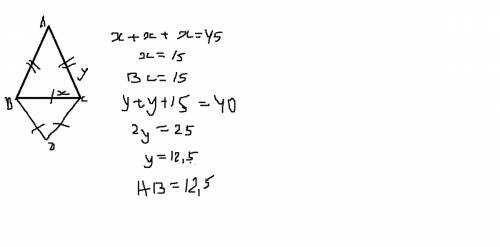 A
y
B
x
C
D
x + x + x = 45
x = 15
BC = 15
y + y + 15 = 40
2y = 25
y = 12,5
AB = 12,5